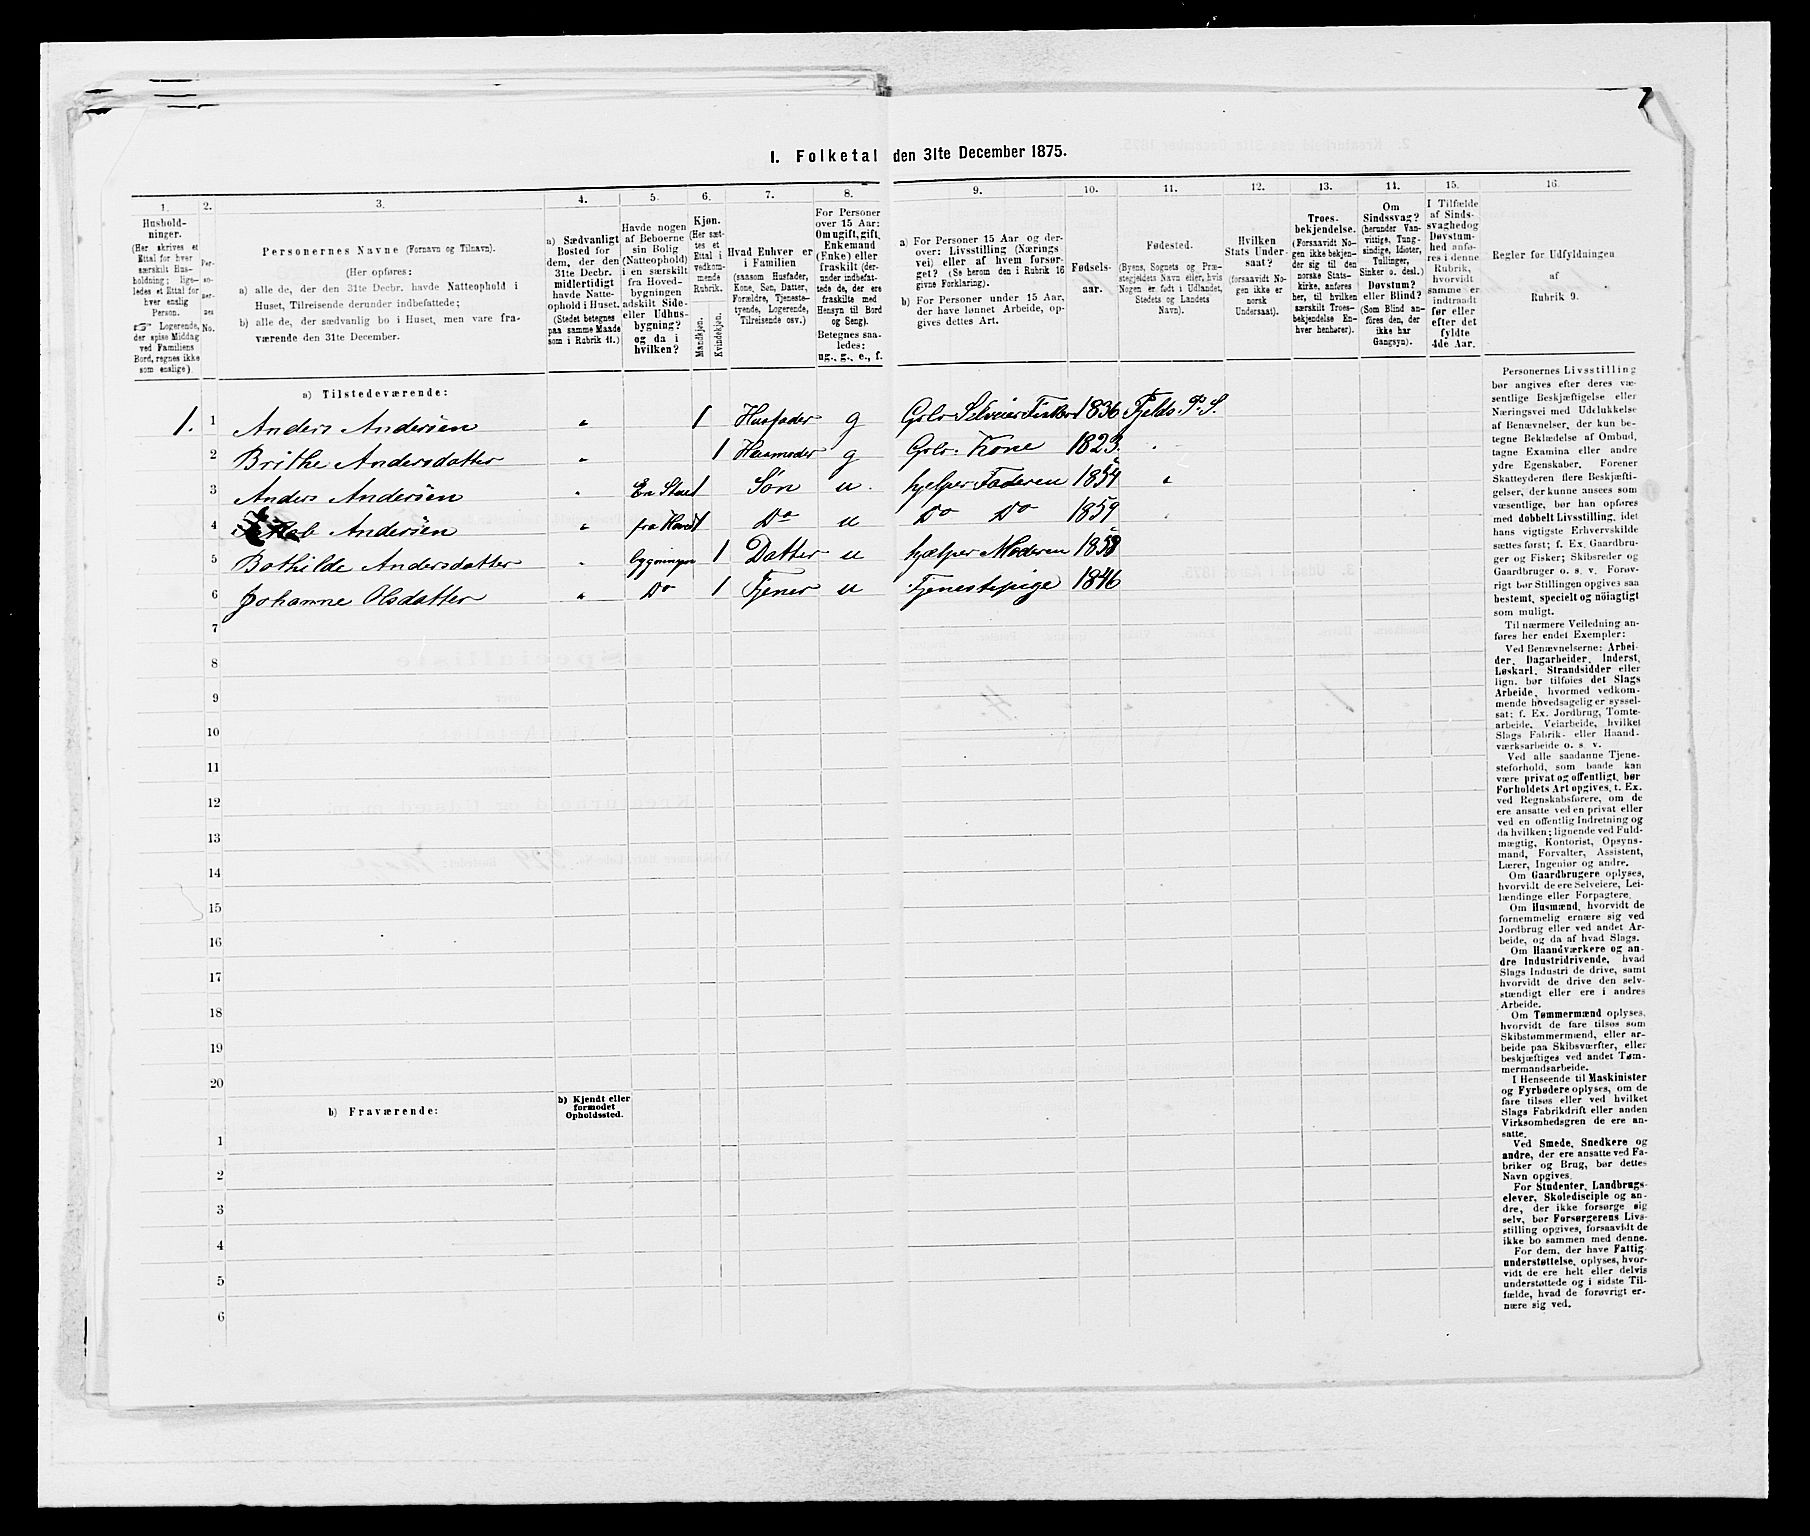 I. Folketal den 31te December 1875.
1. 2. 3. 4. 5. 6. 7. 8. 9. 10. 11. 12. 13. 14. 15. 16.
Husholdninger.
(Her skrives et
Ettal for hver
særskilt Husholdning;
ligeledes et Ettal for
hver enslig
Person.
☞ Logerende,
der spise Middag
ved Familiens
Bord, regnes ikke
som enslige).
Personernes No.
Personernes Navne (Fornavn og Tilnavn).
(Her opføres:
a) alle de, der den 31te Decbr. havde Natteophold i
Huset, Tilreisende derunder indbefattede;
b) alle de, der sædvanlig bo i Huset, men vare fraværende
den 31te December.
a) Sædvanligt
Bosted for
dem, der den
31te Decbr.
midlertidigt
havde Natteophold
i Huset.
(Stedet betegnes
paa samme Maade
som i Rubrik 11.)
Havde nogen
af Beboerne
sin Bolig
(Natteophold)
i en særskilt
fra Hovedbygningen
adskilt Side-
eller Udhusbygning?
og da i
hvilken?
Kjøn.
(Her sættes
et
Ettal i
vedkommende
Rubrik.
Mandkjøn.
Kvindekjøn.
Hvad Enhver er
i Familien
(saasom Husfader,
Kone, Søn, Datter,
Forældre, Tjenestetyende,
Logerende,
Tilreisende osv.)
For Personer
over 15 Aar:
Om ugift, gift,
Enkemand
(Enke) eller
fraskilt (derunder
indbefattede
de, der ere
fraskilte med
Hensyn til Bord
og Seng).
Betegnes saaledes:
ug., g., e., f.
a) For Personer 15 Aar og derover:
Livsstilling (Næringsvei)
eller af hvem forsørget?
(Se herom den i Rubrik 16
givne Forklaring).
b) For Personer under 15 Aar,
der have lønnet Arbeide, opgives
dettes Art.
Fødselsaar.
Fødested.
(Byens, Sognets og Præstegjeldets
Navn eller, hvis
Nogen er født i Udlandet,
Stedets og Landets
Navn).
Hvilken
Stats Undersaat?
(forsaavidt Nogen
ikke er
norsk
Undersaat).
Troesbekjendelse.
(Forsaavidt Nogen
ikke bekjender
sig til den
norske Statskirke,
anføres
her, til hvilken
særskilt Troesbekjendelse
Enhver
henhører).
Om
Sindssvag?
(herunder Vanvittige,
Tungsindige,
Idioter,
Tullinger,
Sinker o. desl.)
Døvstum?
eller Blind?
(Som Blind anføres
den, der
ikke har
Gangsyn).
I Tilfælde
af Sindssvaghed
og
Døvstumhed
anføres
i denne
Rubrik,
hvorvidt
samme er
indtraadt
før eller
efter det
fyldte
4de Aar.
Regler for Udfyldningen
af
Rubrik 9.
a) Tilstedeværende:
1. 1 Anders Andersen " 1 Husfader g Selveier 1836 Fjelds P. S.
2 Brithe Andersdatter " 1 Husmoder g Kone 1823 "
3 Anders Andersen " En Stue 1 Søn u. hjelper Faderen 1854 "
4 Andersen " 1 Do u Do Do 1859 "
5 Bothilde Andersdatter " bygningen 1 Datter u hjælper Moderen 1858
6 Johanne Olsdatter " Do 1 Tjener u Tjenestepige 1846
7
8
9
10
11
12
13
14
15
16
17
18
19
20
b) Fraværende:
b) Kjendt eller
formodet
Opholdssted.
1
2
3
4
5
6
Personernes Livsstilling
bør angives efter deres væsentlige
Beskjæftigelse eller
Næringsvei med Udelukkelse
af Benævnelser, der kun betegne
Beklædelse af Ombud,
tagne Examina eller andre
ydre Egenskaber. Forener
Skatteyderen flere Beskjæftigelser,
der kunne ansees som
væsentlige, bør han opføres
med dobbelt Livsstilling, idet
hans vigtigste Erhvervskilde
sættes først; f. Ex. Gaardbruger
og Fisker; Skibsreder og
Gaardbruger o. s. v. Forøvrigt
bør Stillingen opgives saa
bestemt, specielt og nöiagtigt
som muligt.
Til nærmere Veiledning anføres
her endel Exempler:
Ved Benævnelserne: Arbeider,
Dagarbeider, Inderst,
Løskarl, Strandsidder eller
lign. bør tilføies det Slags
Arbeide, hvormed vedkommende
hovedsagelig er sysselsat;
f. Ex. Jordbrug, Tomtearbeide,
Veiarbeide, hvilket
Slags Fabrik- eller Haandværksarbeide
o. s. v.
Ved alle saadanne Tjenesteforhold,
som baade kan
være privat og offentligt, bør
Forholdets Art opgives, t. Ex.
ved Regnskabsførere, om de
ere ansatte ved en privat eller
ved en offentlig Indretning og
da hvilken; lignende ved Fuldmægtig,
Kontorist, Opsynsmand,
Forvalter, Assistent,
Lærer, Ingeniør og andre.
Om Gaardbrugere oplyses,
hvorvidt de ere Selveiere, Leilændinge
eller Forpagtere.
Om Husmænd, hvorvidt de
fornemmelig ernære sig ved
Jordbrug eller ved andet Arbeide,
og da af hvad Slags.
Om Haandværkere og andre
Industridrivende, hvad
Slags Industri de drive, samt
hvorvidt de drive den selvstændigt
eller ere i andres
Arbeide.
Om Tømmermænd oplyses,
hvorvidt de fare tilsøs som
Skibstømmermænd, eller arbeide
paa Skibsværfter, eller
beskjæftiges ved andet Tømmermandsarbeide.
I Henseende til Maskinister
og Fyrbødere oplyses, om de
fare tilsøs eller ved hvilket
Slags Fabrikdrift eller anden
Virksomhedsgren de ere ansatte.
Ved Smede, Snedkere og
andre, der ere ansatte ved Fabriker
og Brug, bør dettes
Navn opgives.
For Studenter, Landbrugselever,
Skoledisciple og andre,
der ikke forsørge sig
selv, bør Forsørgerens Livsstilling
opgives, forsaavidt de
ikke bo sammen med denne.
For dem, der have Fattigunderstøttelse,
oplyses, hvorvidt
de ere helt eller delvis
understøttede og i sidste Tilfælde,
hvad de forøvrigt ernære
sig ved.